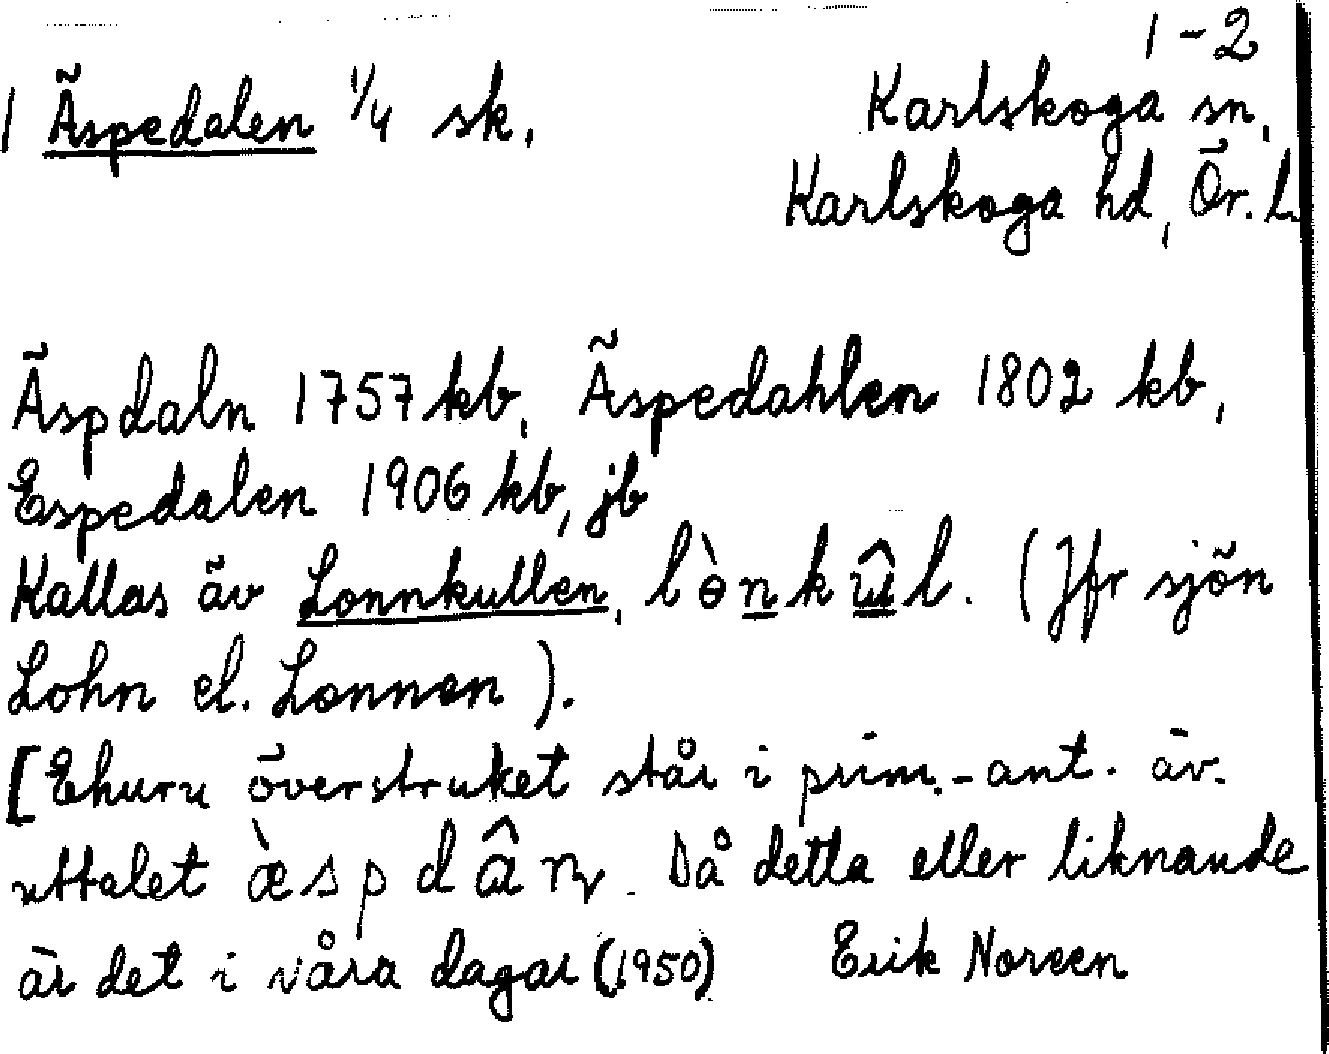 1-2
1 Äspedalen 1/4 sk. Karlskoga sn,
Karlskoga hd, Ör. L.
Äspdaln 1757 kb, Äspedahlen 1802 kb,
Espedalen 1906 kb, jb
Kallas äv Lonnkullen, lònkûl. (Jfr sjön
Lohn el. Lonnen).
[Ehuru överstruket står i prim.-ant. äv.
uttalet æ̀spdâɳ. Då detta eller liknande
är det i våra dagar (1950) Erik Noreen